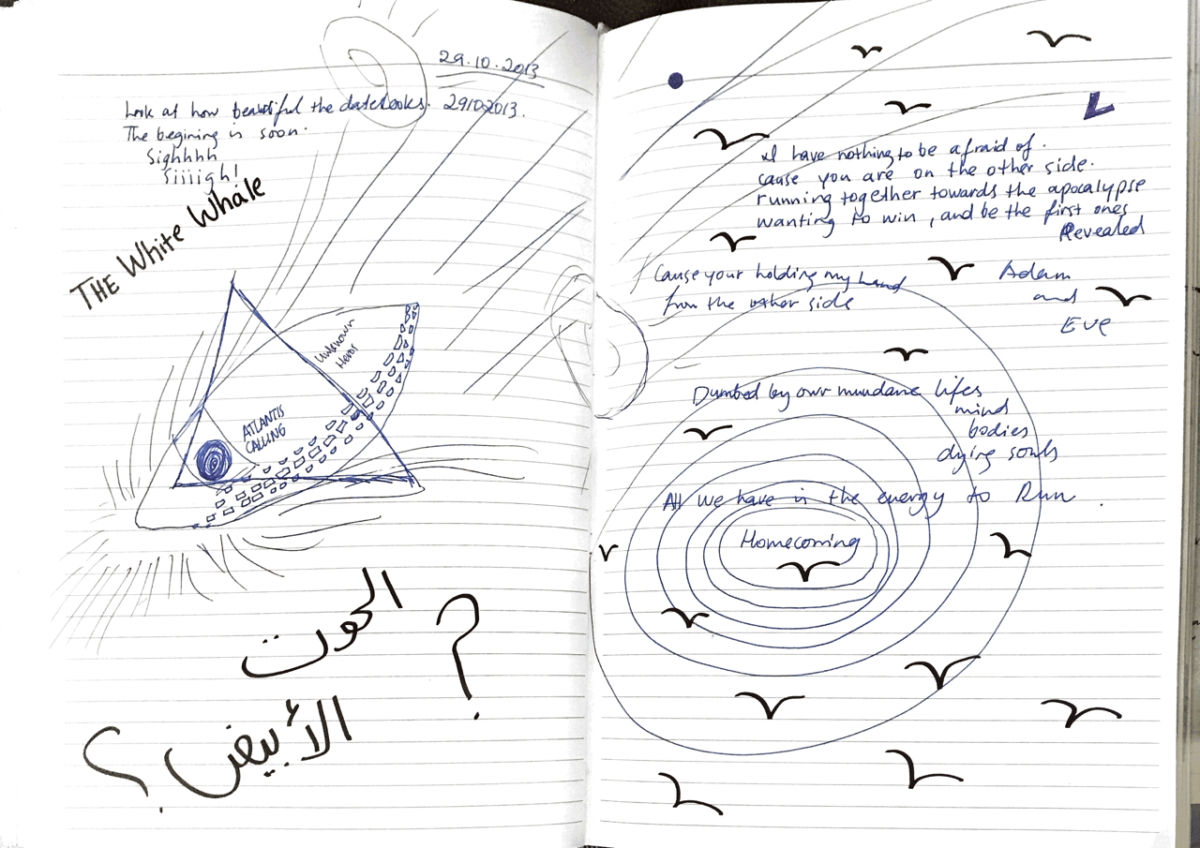 29.10.2013
Look at how beautiful the date looks. 29102013.
The begining is soon.
Sighhhh
Siiiigh!
THE White Whale
Unknown
Heros
ATLANTIS
CALLING
الحوت
؟
الأبيض؟
I have nothing to be afraid of.
cause you are on the other side.
running together towards the apocalypse
wanting to win, and be the first ones
Revealed
Cause your holding my hand
from the other side
Adam
and
Eve
Dumbed by our mundane lifes
mind
bodies
dying souls
All we have is the energy to Run.
Homecoming